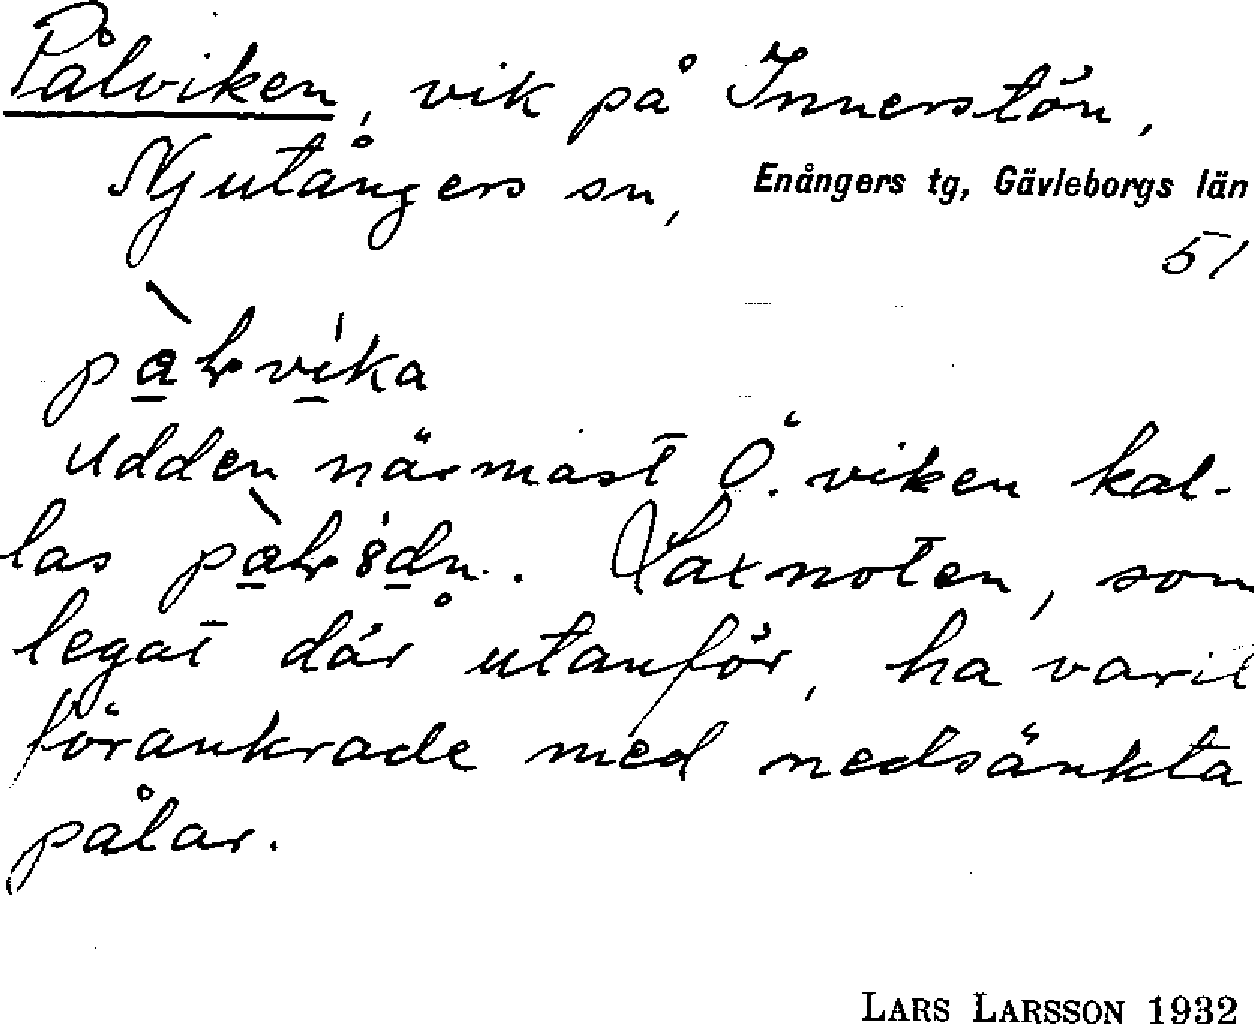 Pålviken, vik på Innerstön,
Njutångers sn, Enångers tg, Gävleborgs län
51
udden närmast Ö. viken kal-
las Laxnoten, som
legat där utanför, ha varit
förankrade med nedsänkta
pålar.
LARS LARSSON 1932